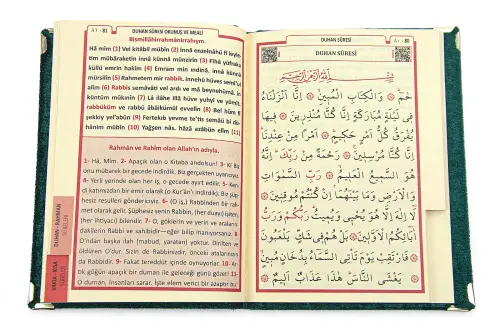 81 - ٨١
DUHAN SÛRESİ OKUNUŞ VE MEALİ
Bismillâhirrahmânirrahıym.
Hâ mîm (1) Vel kitâbil mübîn (2) innâ enzelnâhü fî leyle-
tim mübâraketin innâ künnâ münzirîn (3) Fîhâ yüfraku
küllü emrin hakîm (4) Emram min ındinâ, innâ künnâ
mürsilîn (5) Rahmetem mir rabbik, innehü hüves semî'ul
alîm (6) Rabbis semâvâti vel ardı ve mâ beynehümâ, in
küntüm mûkınîn (7) Lâ ilâhe illâ hüve yuhyî ve yümît,
rabbüküm ve rabbü âbâikümül evvelîn (8) Bel hüm fî
şekkiy yel'abûn (9) Fertekıb yevme te'tis semâü bi dü-
hânim mübîn (10) Yağşen nâs, hâzâ azâbün elîm (11)
Rahmân ve Rahîm olan Allah'ın adıyla.
1- Hâ, Mîm. 2- Apaçık olan o Kitaba andolsun! 3- Ki Biz
onu mübarek bir gecede indirdik. Biz gerçekten uyarıcıyız.
4- Yerli yerinde olan her iş, o gecede ayırt edilir. 5- Ken-
di katımızdan bir emir olarak (o Kur'an'ı indirdik). Biz,
resulleri göndericiyiz.
met olarak gelir. Şüphesiz senin Rabbin, (her duayı) işiten,
(her ihtiyacı) bilendir. 7- O, göklerin ve yerin ve araların-
dakilerin Rabbi ve sahibidir—eğer bilip inanıyorsanız. 8-
O'ndan başka ilah (mabud, yaratan) yoktur. Dirilten ve
öldüren O'dur. Sizin de Rabbinizdir, önceki atalarınızın
da Rabbidir. 9- Fakat tereddüt içinde oynuyorlar. 10- Ar-
tık göğün apaçık bir duman ile geleceği günü gözle! 11-
O duman, insanları sarar. İşte elem verici bir azaptır bu
DUHAN - RAHMAN
SÛRELERİ
80 - ٨٠
DUHAN SÛRESİ
DUHAN SÛRESİ
بِسْمِ اللّٰهِ الرَّحْمٰنِ الرَّحِيمِ
حٰمٓ ۞ وَالْكِتَابِ الْمُبِينِ ۞ اِنَّٓا اَنْزَلْنَاهُ
فِي لَيْلَةٍ مُبَارَكَةٍ اِنَّا كُنَّا مُنْذِرِينَ ۞ فِيهَا
يُفْرَقُ كُلُّ اَمْرٍ حَكِيمٍ ۞ اَمْرًا مِنْ عِنْدِنَا
اِنَّا كُنَّا مُرْسِلِينَ ۞ رَحْمَةً مِنْ رَبِّكَ اِنَّهُ
هُوَ السَّمِيعُ الْعَلِيمُ ۞ رَبِّ السَّمٰوَاتِ
وَالْاَرْضِ وَمَا بَيْنَهُمَا اِنْ كُنْتُمْ مُوقِنِينَ ۞
لَٓا اِلٰهَ اِلَّا هُوَ يُحْيِي وَيُمِيتُ رَبُّكُمْ وَرَبُّ
اٰبَٓائِكُمُ الْاَوَّلِينَ ۞ بَلْ هُمْ فِي شَكٍّ يَلْعَبُونَ
۞ فَارْتَقِبْ يَوْمَ تَأْتِي السَّمَٓاءُ بِدُخَانٍ مُبِينٍ
۞ يَغْشَى النَّاسَ هٰذَا عَذَابٌ اَلِيمٌ ۞